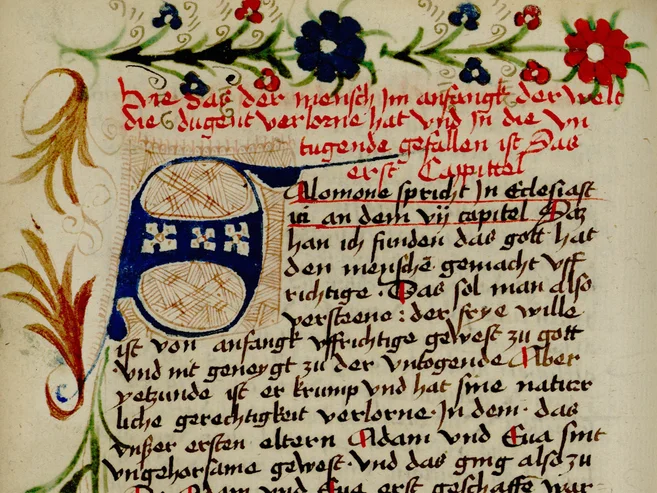 Hie das der mensch Jm anfangk der welt
die dugent verlorne hat vnd Jn die vn
tugende gefallen ist Das
erst Cappittel
Salomone spricht Jn Eclesiast
an dem vij capitel Daz
han ich funden das gott hat
den menschē gemacht vff
richtige Das sol man also
versteene : der frye wille
ist von anfangk vffrichtige gewest zu gott
vnd nit geneygt zu der vntogende Aber
yetzunde ist er krump vnd hat sine naturr
liche gerechtigkeit verlorne Jn dem das
vnßer ersten eltern Adam vnd Eua sint
vngehorsame gewest vnd das ging also zu
Adam vnd Eue erst geschaffē war